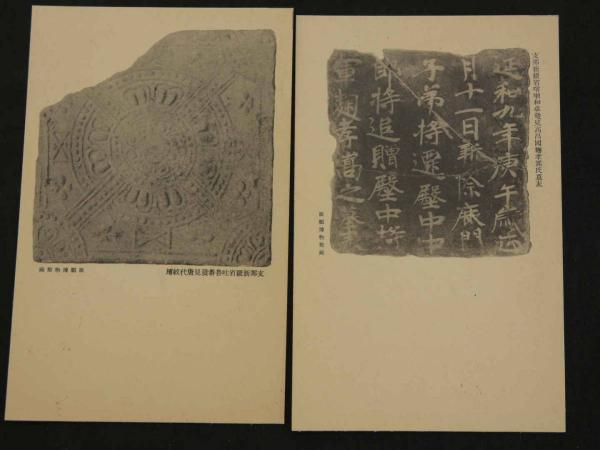 支那新疆省吐魯番發見唐代紋塼
旅順博物館藏
支那新疆省喀喇和卓發見高昌國麴孝嵩氏墓表
延和九年庚午歲
月十一日新除鹿門
子弟將遷殿中中
郎將追贈殿中將
軍麴孝嵩之墓表
旅順博物館藏